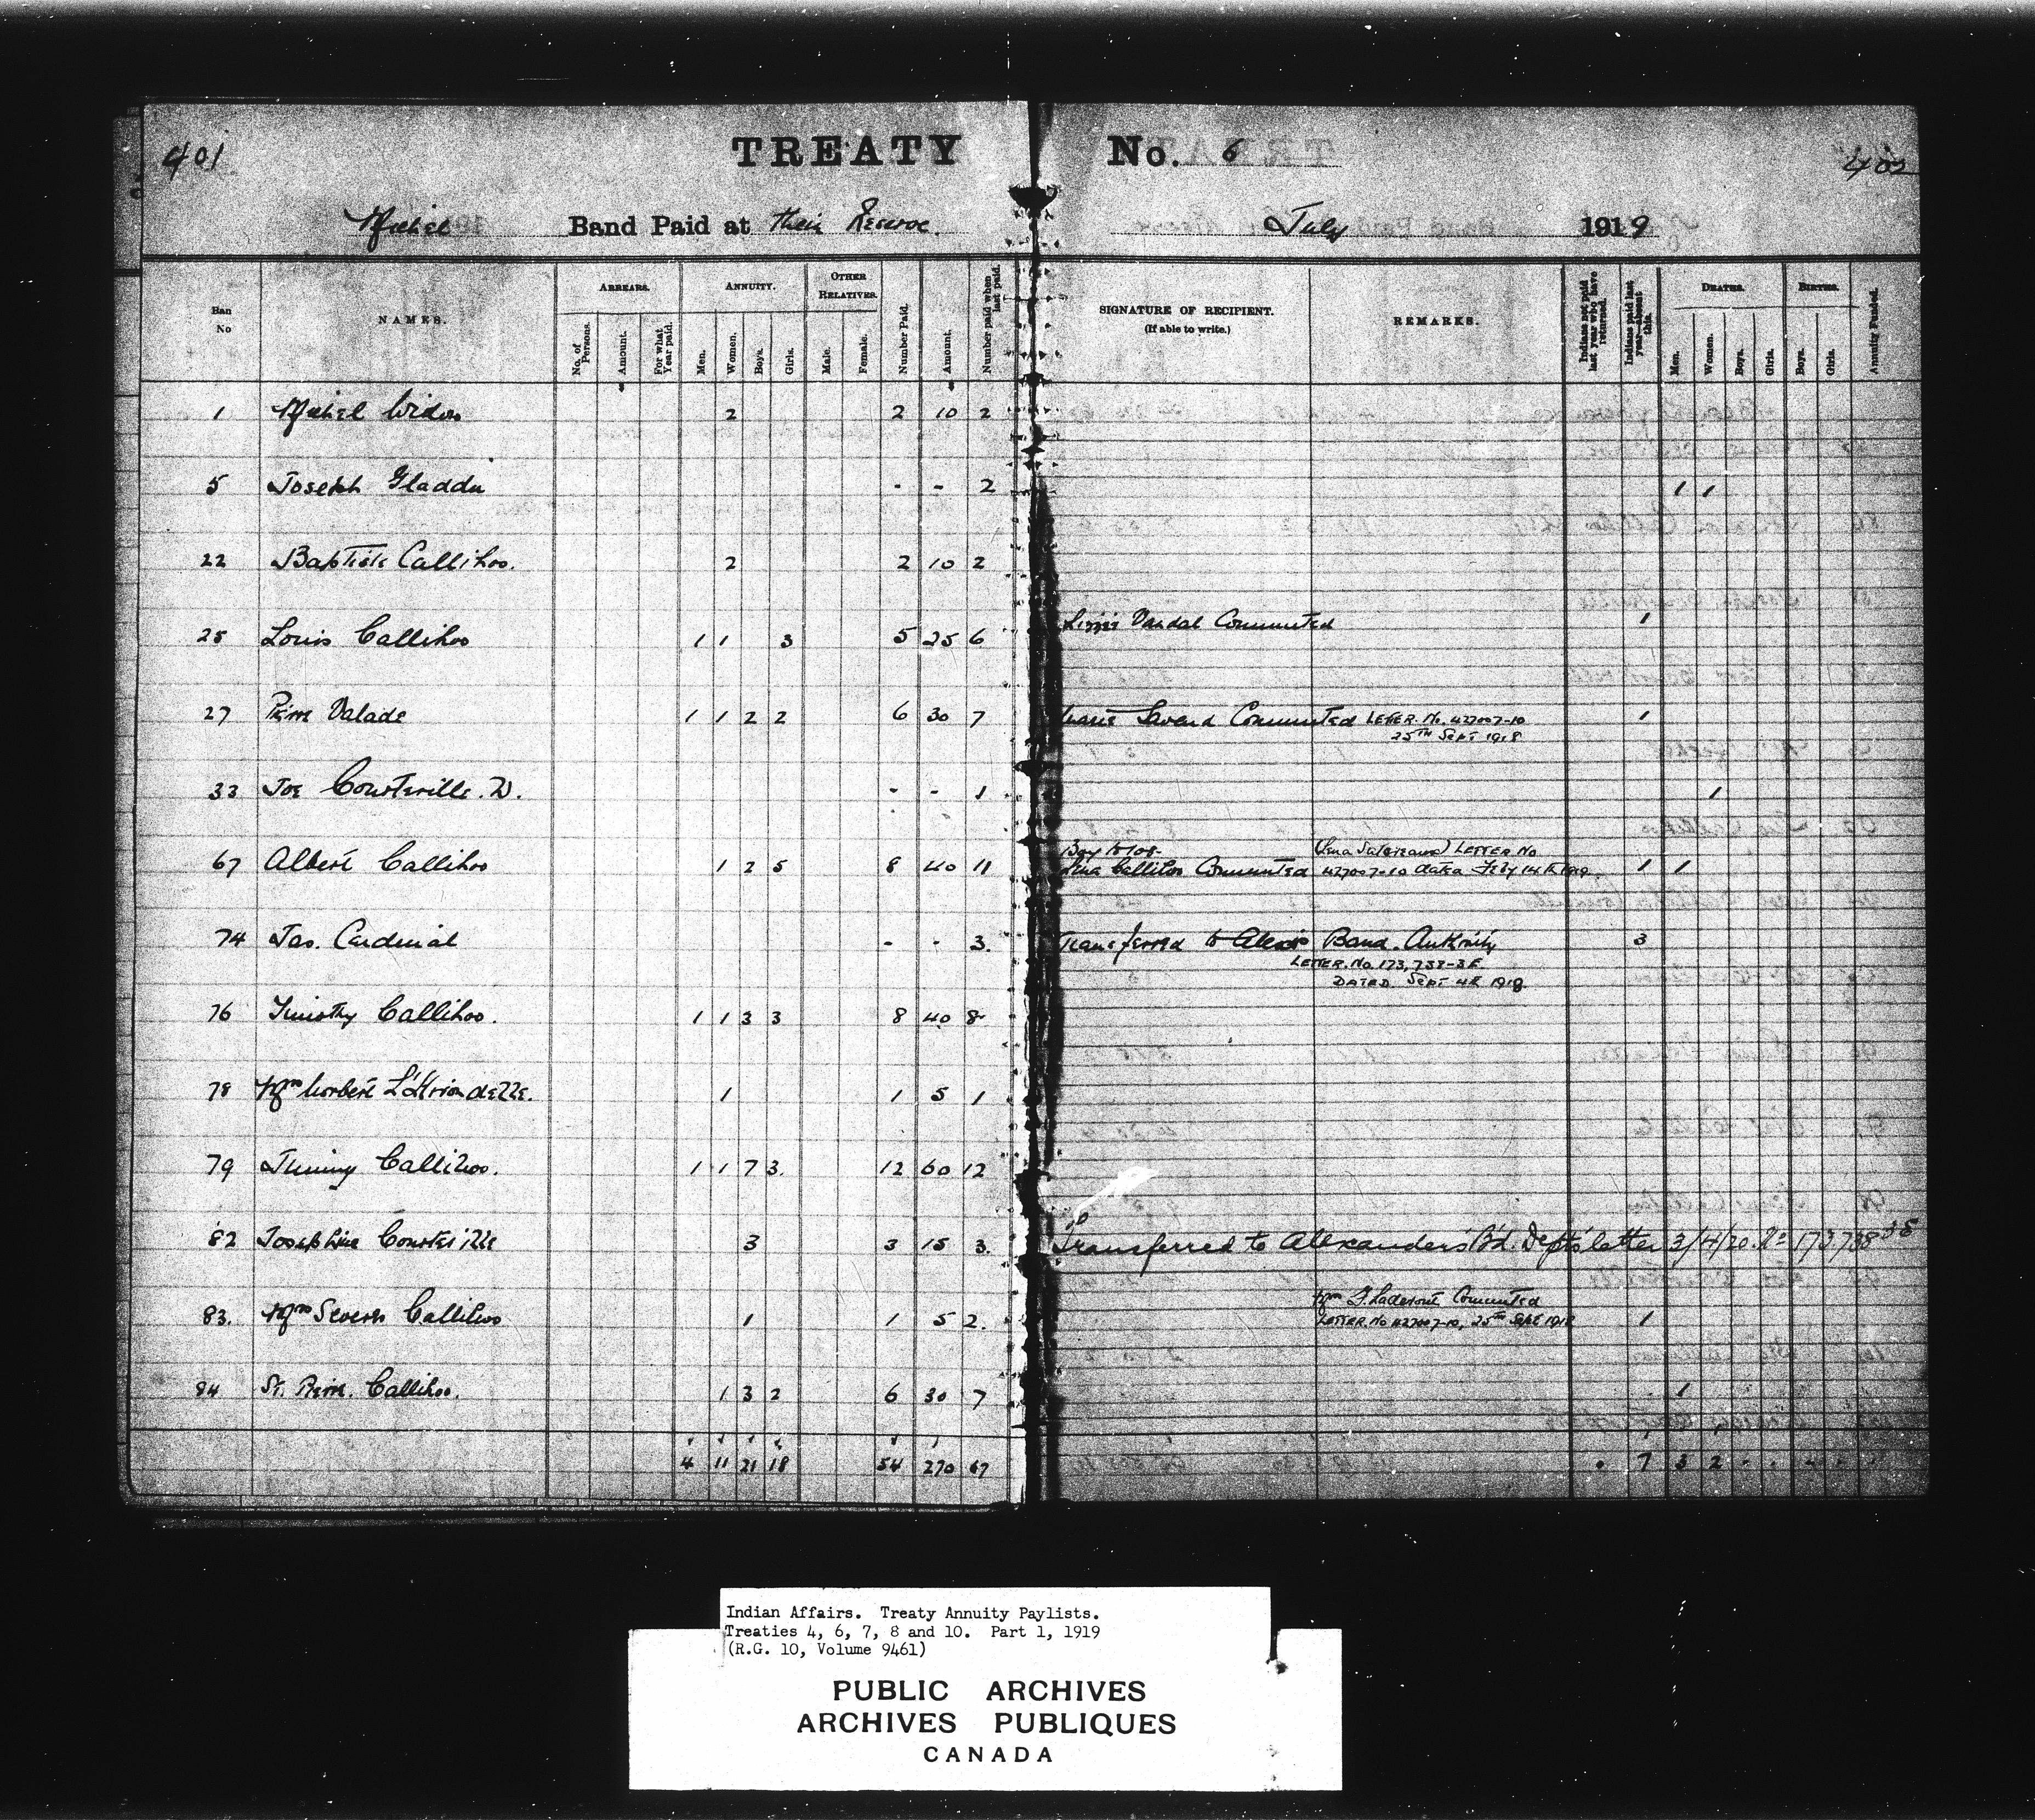 401 TREATY No. 6 402
Michel Band Paid at their Reserve. July 1919
Ban No
NAMES.
ARREARS.
No. of Persons.
Amount.
For what Year paid.
ANNUITY.
Men.
Women.
Boys.
Girls.
OTHER RELATIVES.
Male.
Female.
Number Paid.
Amount.
Number paid when last paid.
SIGNATURE OF RECIPIENT.
(If able to write.)
REMARKS.
Indians not paid last year who have returned.
Indians paid last year—absent this.
DEATHS.
Men.
Women.
Boys.
Girls.
BIRTHS.
Boys.
Girls.
Annuity Funded.
1 Michel Widow 2 2 10 2
5 Joseph Gladdu - - 2 1 1
22 Baptiste Callihoo. 2 2 10 2
25 Louis Callihoo 1 1 3 5 25 6 Lizzie Vandal Commuted 1
27 Pierre Valade 1 1 2 2 6 30 7 Commuted LETTER. No. 427007-10 1
25TH Sept 1918
33 Joe Courteville. W. - - 1 1
Boy to 108- (Lena ) LETTER No
67 Albert Callihoo 1 2 5 8 40 11 Lena Callihoo Commuted 427007-10 dated Feby 14th 1919. 1 1
74 Jas. Cardinal - - 3. Transferred to Alexis Band. Authority 3
LETTER. No. 173,738-3E.
DATED Sept 4th 1918.
76 Timothy Callihoo. 1 1 3 3 8 40 8
78 Mrs Norbert L'Hirondelle. 1 1 5 1
79 Jimmy Callihoo. 1 1 7 3. 12 60 12
82 Josephine Courteville 3 3 15 3. Transferred to Alexander's Bd. Dept's letter 3/4/20. No 173738 3E
Mrs F. Laderoute Commuted
83. Mrs Severn Callihoo 1 1 5 2. LETTER. No 427007-10, 25TH Sept 1918 1
84 St. Pierre. Callihoo. 1 3 2 6 30 7 1
4 11 21 18 54 270 67 7 3 2
Indian Affairs. Treaty Annuity Paylists.
Treaties 4, 6, 7, 8 and 10. Part 1, 1919
(R.G. 10, Volume 9461)
PUBLIC ARCHIVES
ARCHIVES PUBLIQUES
CANADA